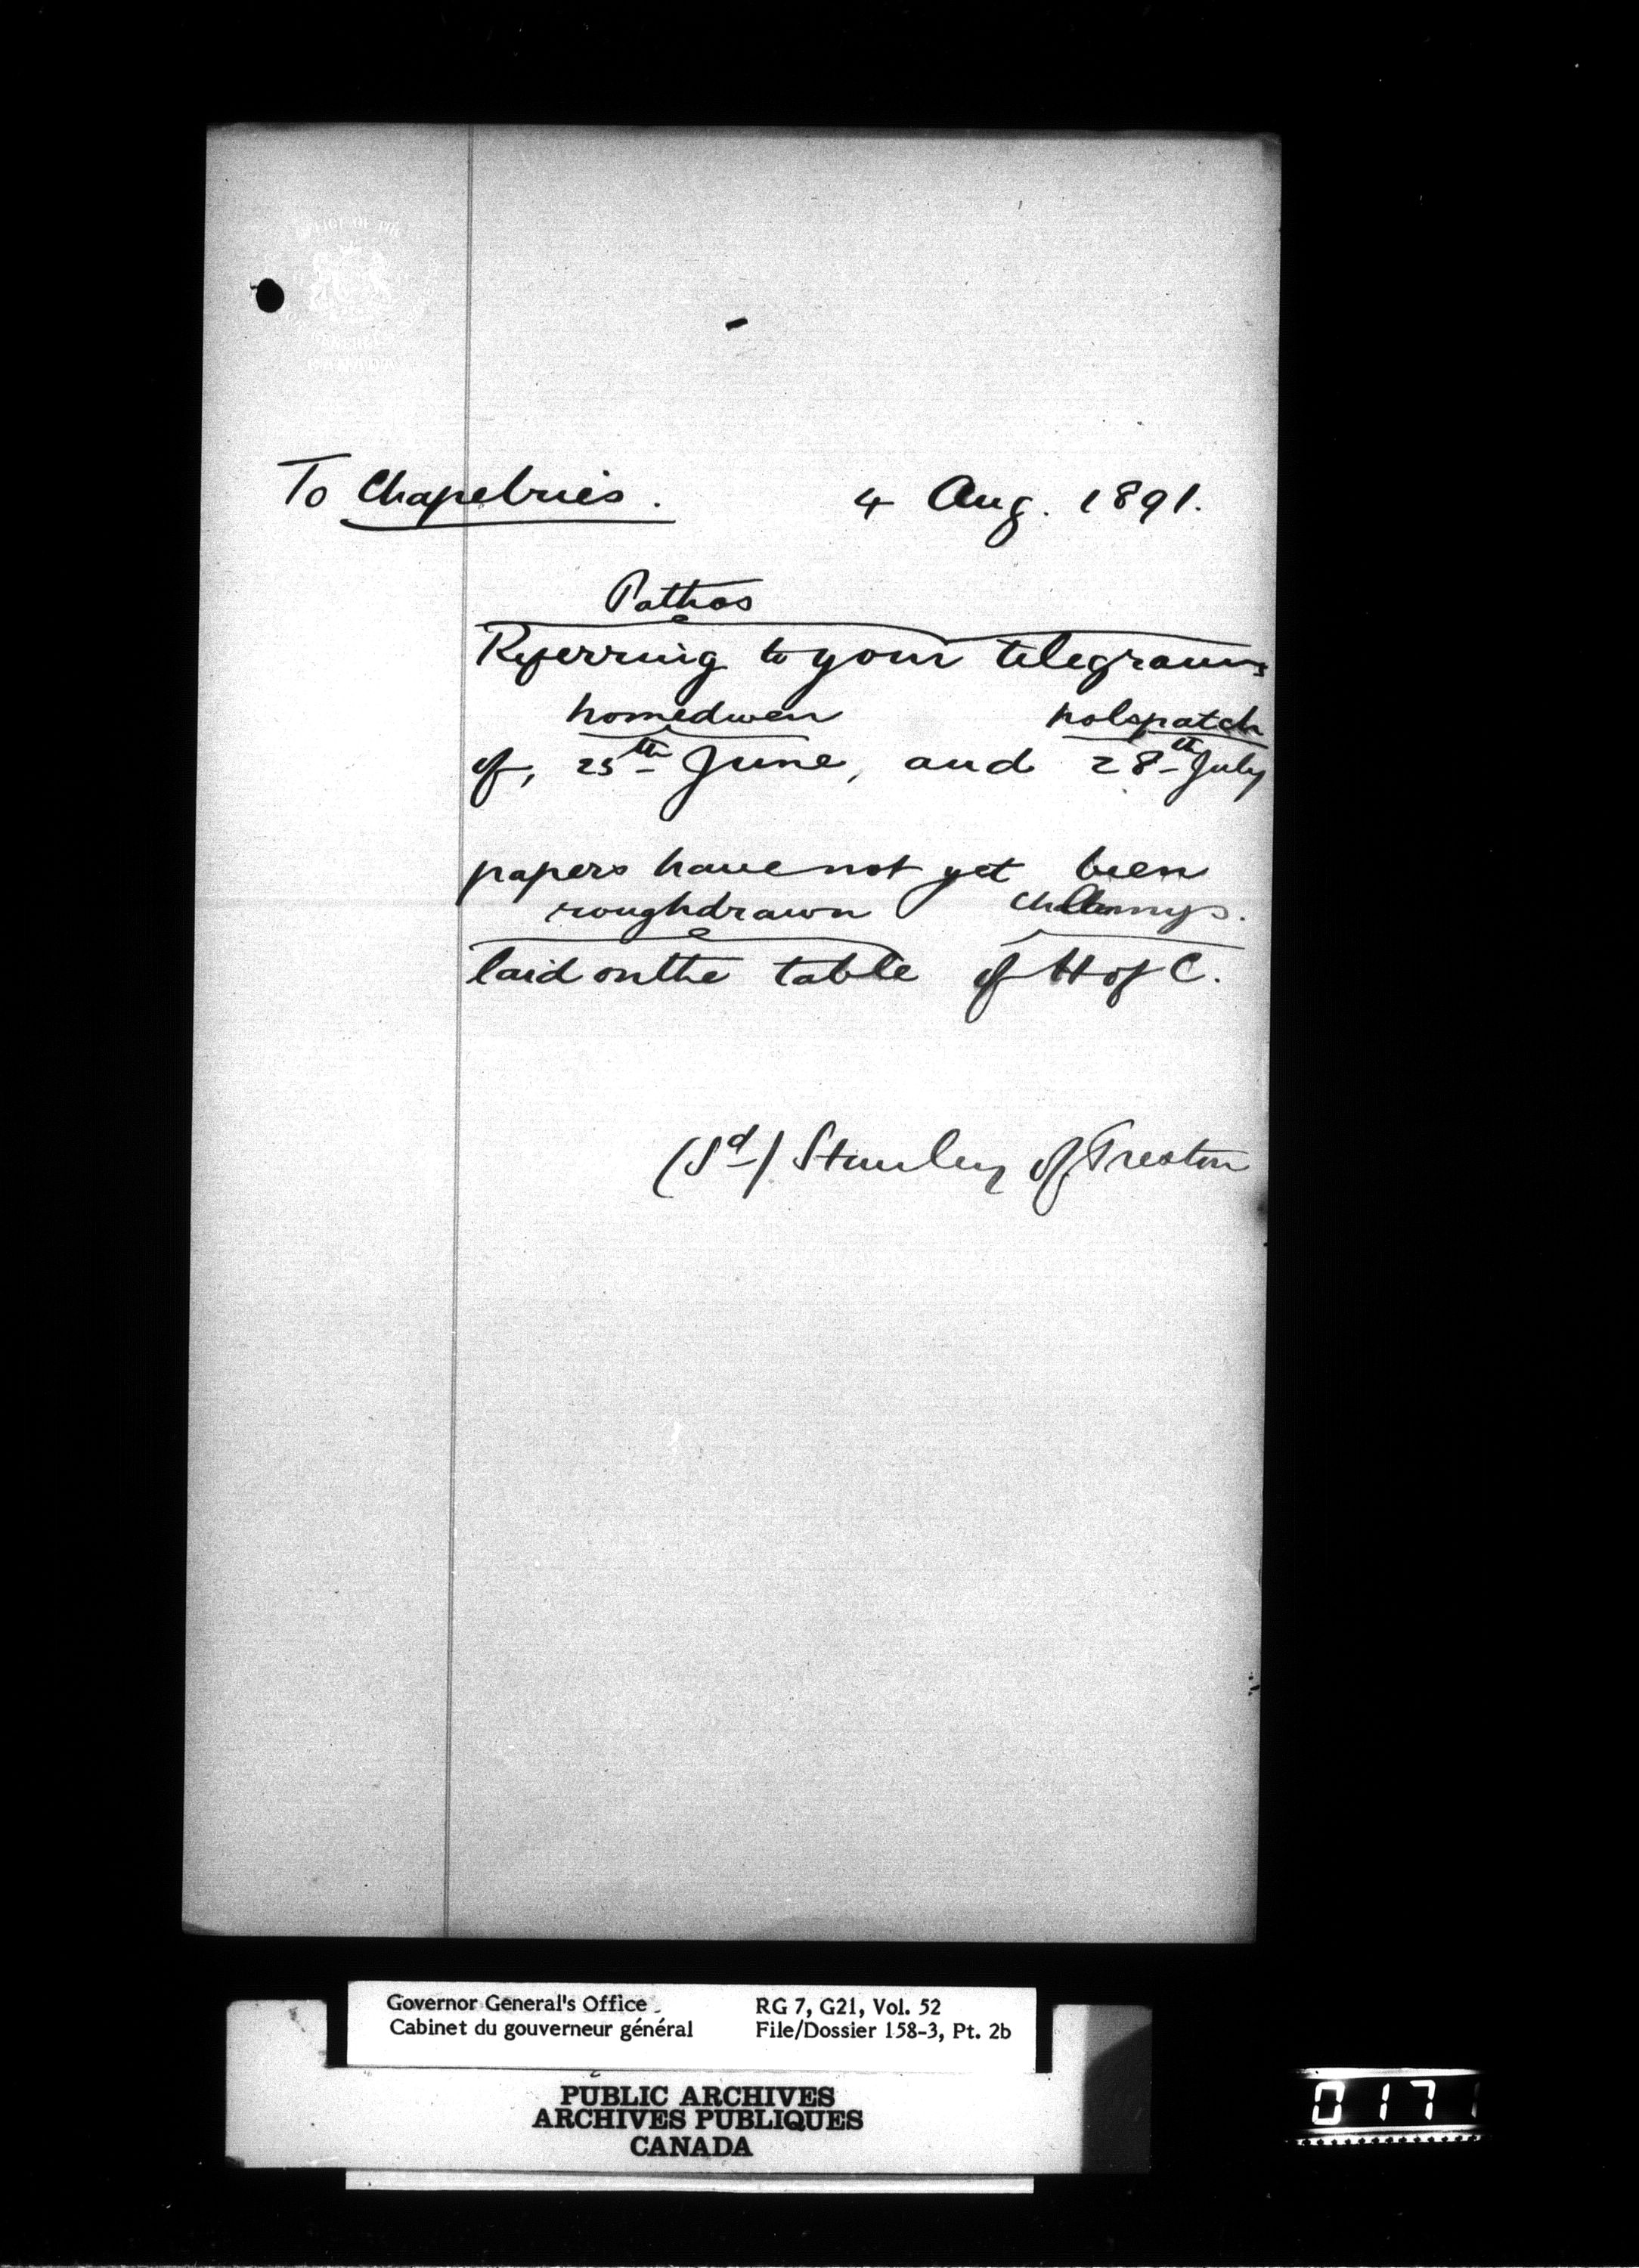 To Chapelries. 4 Aug. 1891.
Pathos
Referring to your telegrams
homedwen holspatch
of, 25th June, and 28th July
papers have not yet been
roughdrawn chlamys.
laid on the table of H of C.
(Sd) Stanley of Preston
Governor General's Office RG 7, G21, Vol. 52
Cabinet du gouverneur général File/Dossier 158-3, Pt. 2b
PUBLIC ARCHIVES
ARCHIVES PUBLIQUES
CANADA
0171